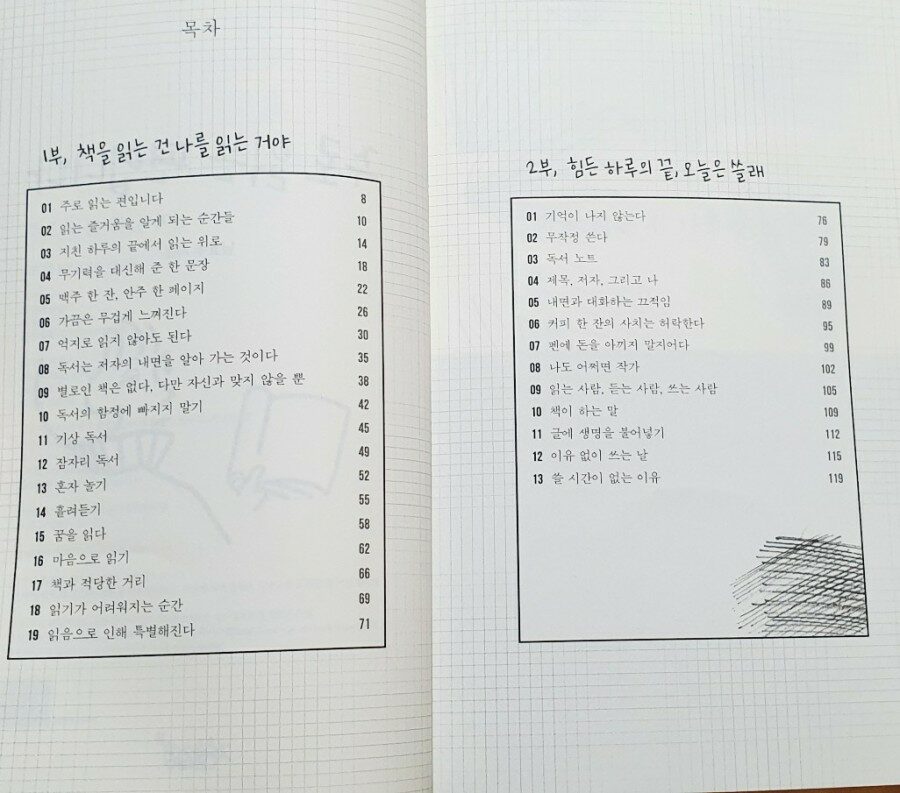 목차
1부, 책을 읽는 건 나를 읽는 거야
01 주로 읽는 편입니다 8
02 읽는 즐거움을 알게 되는 순간들 10
03 지친 하루의 끝에서 읽는 위로 14
04 무기력을 대신해 준 한 문장 18
05 맥주 한 잔, 안주 한 페이지 22
06 가끔은 무겁게 느껴진다 26
07 억지로 읽지 않아도 된다 30
08 독서는 저자의 내면을 알아 가는 것이다 35
09 별로인 책은 없다, 다만 자신과 맞지 않을 뿐 38
10 독서의 함정에 빠지지 말기 42
11 기상 독서 45
12 잠자리 독서 49
13 혼자 놀기 52
14 흘려듣기 55
15 꿈을 읽다 58
16 마음으로 읽기 62
17 책과 적당한 거리 66
18 읽기가 어려워지는 순간 69
19 읽음으로 인해 특별해진다 71
2부, 힘든 하루의 끝, 오늘은 쓸래
01 기억이 나지 않는다 76
02 무작정 쓴다 79
03 독서 노트 83
04 제목, 저자, 그리고 나 86
05 내면과 대화하는 끄적임 89
06 커피 한 잔의 사치는 허락한다 95
07 펜에 돈을 아끼지 말지어다 99
08 나도 어쩌면 작가 102
09 읽는 사람, 듣는 사람, 쓰는 사람 105
10 책이 하는 말 109
11 글에 생명을 불어넣기 112
12 이유 없이 쓰는 날 115
13 쓸 시간이 없는 이유 119